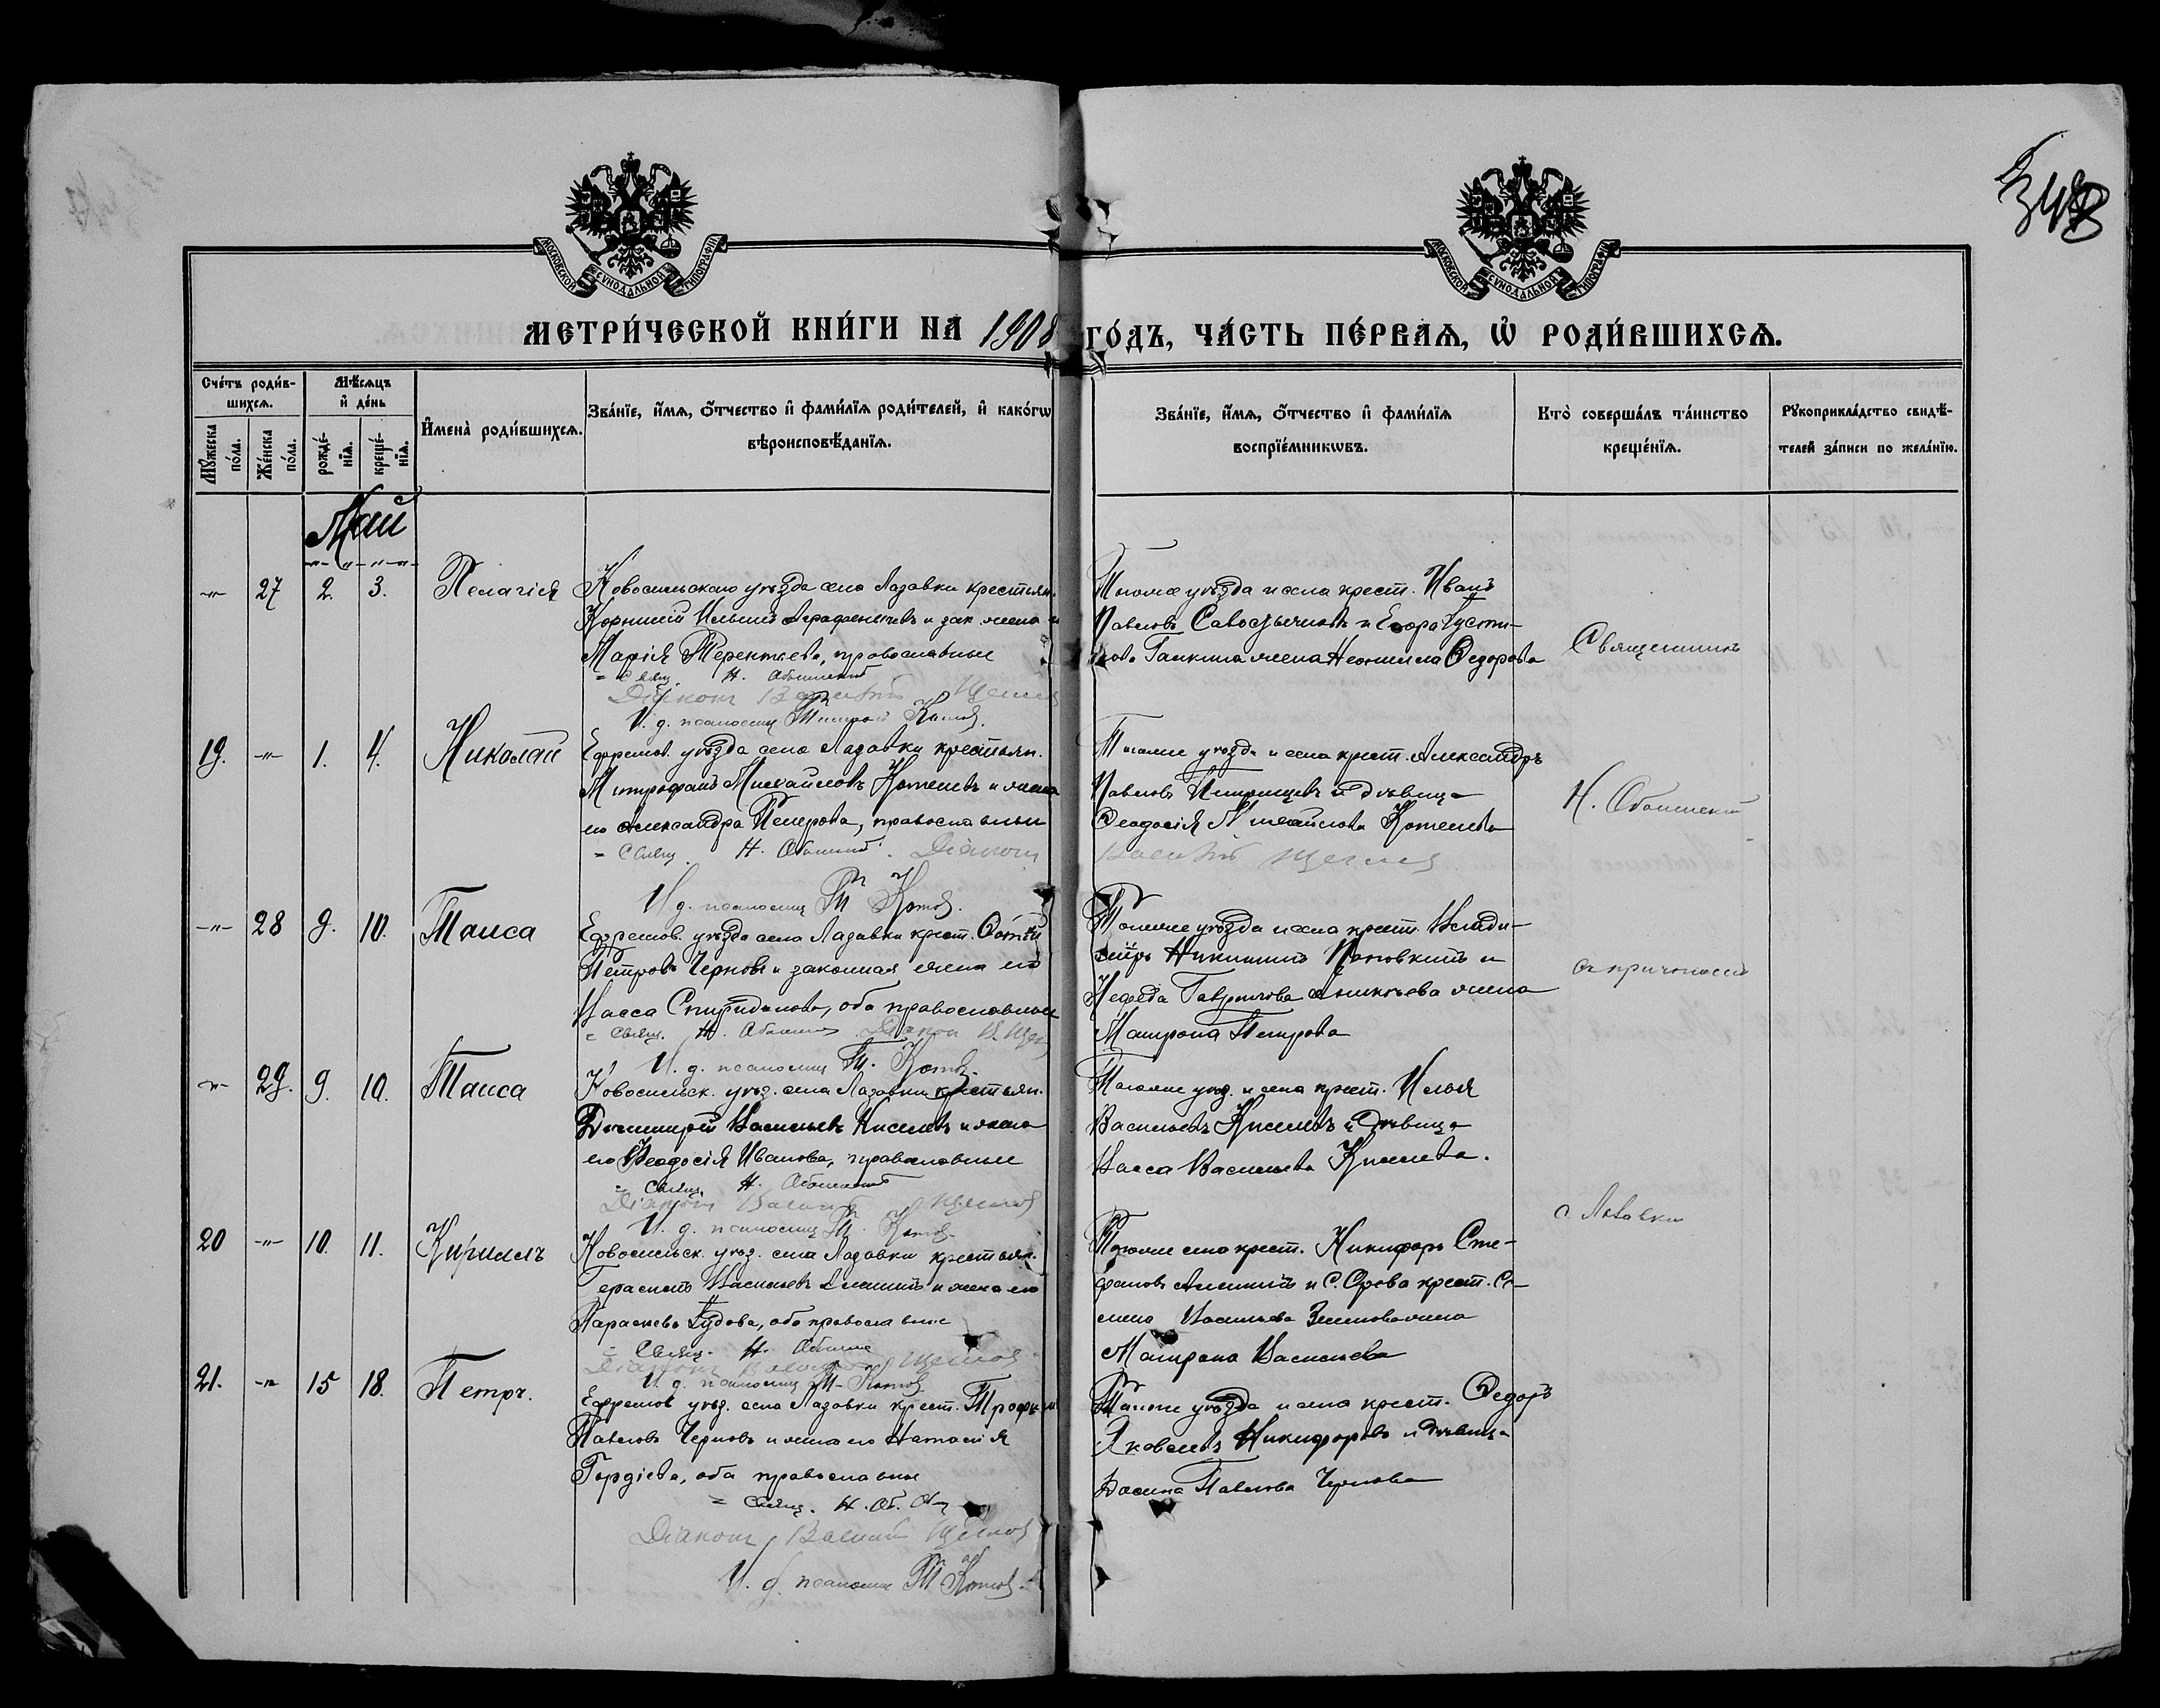 348
МОСКОВСКОЙ СѴНОДАЛЬНОЙ ТИПОГРАФІИ
МОСКОВСКОЙ СѴНОДАЛЬНОЙ ТИПОГРАФІИ
МЕТРИ́ЧЕСКОЙ КНИ́ГИ НА 1908 ГО́ДЪ, ЧА́СТЬ ПЕ́РВАѦ, Ѡ҆ РОДИ́ВШИХСѦ.
Сче́тъ роди́в-
шихсѧ.
Мꙋ́жеска по́ла.
Же́нска по́ла.
Мѣ́сѧцъ
и҆ де́нь
рожде́-
нїѧ.
креще́-
нїѧ.
И҆мена̀ роди́вшихсѧ.
Зва́нїе, и҆́мѧ, ѻ҆́тчество и҆ фами́лїѧ роди́телей, и҆ како́гѡ
вѣроисповѣ́данїѧ.
Зва́нїе, и҆́мѧ, ѻ҆́тчество и҆ фами́лїѧ
воспрїе́мникѡвъ.
Кто̀ соверша́лъ та́инство
креще́нїѧ.
Рꙋкоприкла́дство свидѣ́-
телей за́писи по жела́нїю.
Май
-"- 27 2. 3. Пелагія
Новосильскаго уѣзда села Лазавки крестьян.
Корнилій Ильинъ и зак. жена
Марія Терентьева, православные
Свящ. Н.
Діаконъ Щеглов
И. д. псаломщ. Котов.
Того же уѣзда и села крест. Иванъ
Павловъ и Егора Густи-
жена Неонила Федорова
Священникъ
19. -"- 1. 4. Николай
Ефремов. уѣзда села Лазавки крестьян.
Митрофанъ Михайловъ Котелевъ и жена
его Александра Петрова, православны
Свящ. Н. Діаконъ
Щеглов
И. д. псаломщ. Т. Котов.
Того же уѣзда и села крест. Александръ
Павловъ и дѣвица
Феодосія Михайлова Котелева
Н.
-"- 28 9. 10. Таиса
Ефремов. уѣзда села Лазавки крест. Фотій
Петровъ Черновъ и законная жена его
Васса Спиридонова, оба православные
Свящ. Н. Діакон В. Щег
И. д. псаломщ. Т. Котов.
Того же уѣзда и села крест. Влади-
міръ Никитинъ и
Нефеда Гаврилова жена
Матрона Петрова
съ причтомъ
-"- 29. 9. 10. Таиса
Новосильск. уѣз. села Лазавки крестьян.
Димитрій Васильевъ Киселевъ и жена
его Феодосія Иванова, православные
Свящ. Н.
Діаконъ Щеглов
И. д. псаломщ. Т. Котов.
Того же уѣз. и села крест. Илья
Васильевъ Киселевъ и дѣвица
Васса Васильева Киселева.
с. Лазавки
20 -"- 10. 11. Кириллъ
Новосильск. уѣз. села Лазавки крестьян.
Герасимъ Васильевъ Алешинъ и жена его
Параскева, оба православные
Свящ. Н.
Діаконъ Щеглов
И. д. псаломщ. Т. Котов.
Того же села крест. Никифоръ Сте-
фановъ Алешинъ и крест. Се-
мена Васильева жена
Матрона Васильева
21. -"- 15 18. Петръ.
Ефремов уѣз. села Лазавки крест. Трофим
Павловъ Черновъ и жена его Наталія
Гордіева, оба православные
Свящ. Н. Об.
Діаконъ Щеглов
И. д. псаломщ. Т. Котов.
Того же уѣзда и села крест. Федоръ
Яковлевъ Никифоровъ и дѣвица
Павлова Чернова